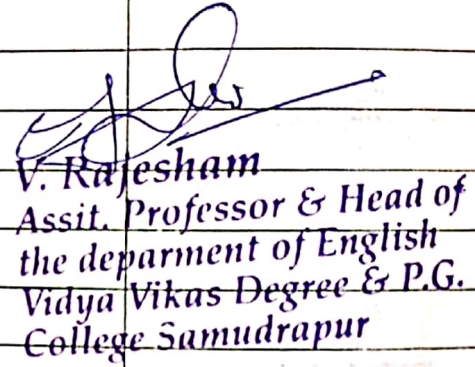 V. Rajesham
Assit. Professor & Head of
the deparment of English
Vidya Vikas Degree & P.G.
College Samudrapur